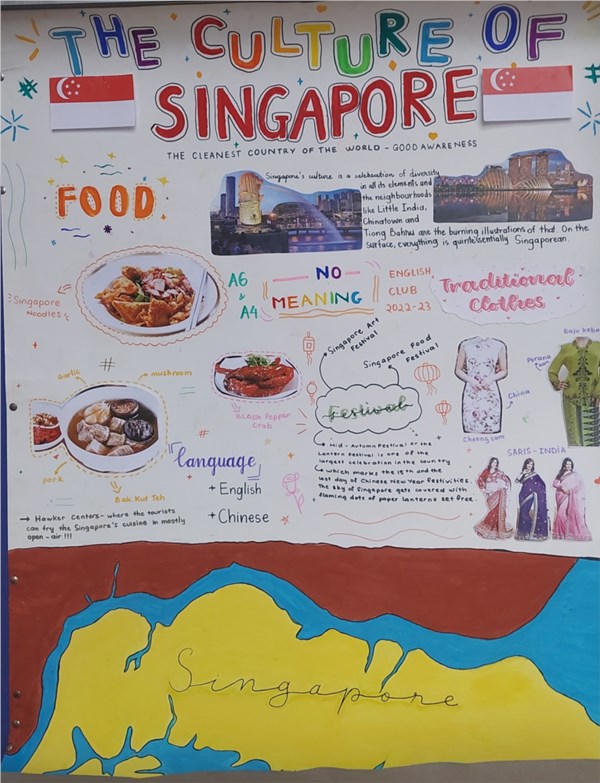 THE CULTURE OF
SINGAPORE
THE CLEANEST COUNTRY OF THE WORLD - GOOD AWARENESS
FOOD
Singapore's culture is a celebration of diversity
in all its elements and
the neighbourhoods
like Little India,
Chinatown and
Tiong Bahru are the burning illustrations of that. On the
surface, everything is quintessentially Singaporean.
Singapore
Noodles
A6
&
A4
NO
MEANING
ENGLISH
CLUB
2022-23
Traditional
Clothes
Singapore Art
Festival
Singapore Food
Festival
Festival
Mid-Autumn Festival or the
Lantern Festival is one of the
largest celebration in the country
which marks the 15th and the
last day of Chinese New Year festivities.
The sky of Singapore gets covered with
flaming dots of paper lanterns set free.
garlic
mushroom
pork
Bak Kut Teh
Black Pepper
Crab
→ Hawker Centers- where the tourists
can try the Singapore's cuisine in mostly
open-air !!!
Language
+ English
+ Chinese
Cheongsam
China
Baju Keba
SARIS - INDIA
Singapore